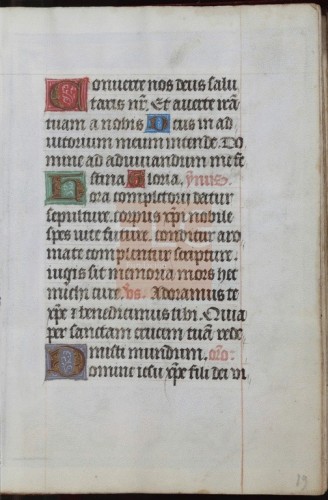 Convierte nos deus salu
taris nr̄. Et averte irā
tuam a nobis Deus in ad
iutorium meum intende Do
mine ad adiuvandum me fe
stina Gloria. ymnus.
Hora completorij datur
sepulture. corpus xpi nobile
spes vite future. conditur aro
mate complentur scripture.
iugis sit memoria mors hec
michi cure. vs. Adoramus te
xpe ⁊ benedicimus tibi. Quia
per sanctam crucem tuā rede
misti mundum. oro.
Domine iesu xpe fili dei vi
29